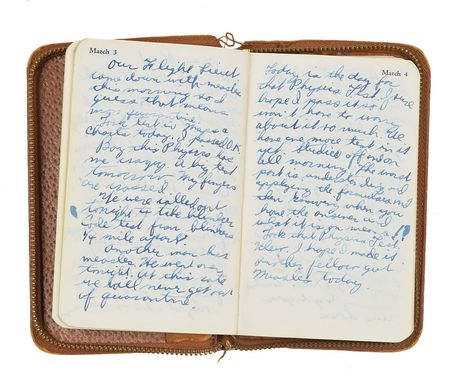 March 3
Our Flight Lieut
came down with measles
this morning so I
guess that means
Took test in Maps &
Charts today. I passed O.K.
Boy this Physics has
me crazy. A big test
tomorrow. My fingers
are crossed.
We were called out
tonight to take blinker
Code test from blinkers
1/4 mile apart.
Another man has
measles. He went away
tonight. At this rate
we shall never get out
of quarantine.
March 4
Today is the day for
that Physics Test. I sure
hope I pass it so I
won't have to worry
about it so much. We
have one more test in it
yet. Studied off and on
all morning. The worst
part is understanding and
applying the formulas and
then knowing when you
have the answer and
what it is you mean.
Took that Physics Test.
I hope I made it.
Another fellow got
Measles today.